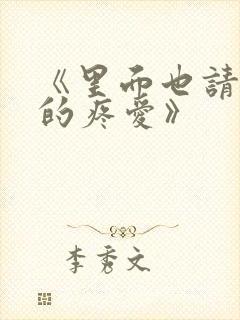 《里而也請
的疼愛》
李秀文